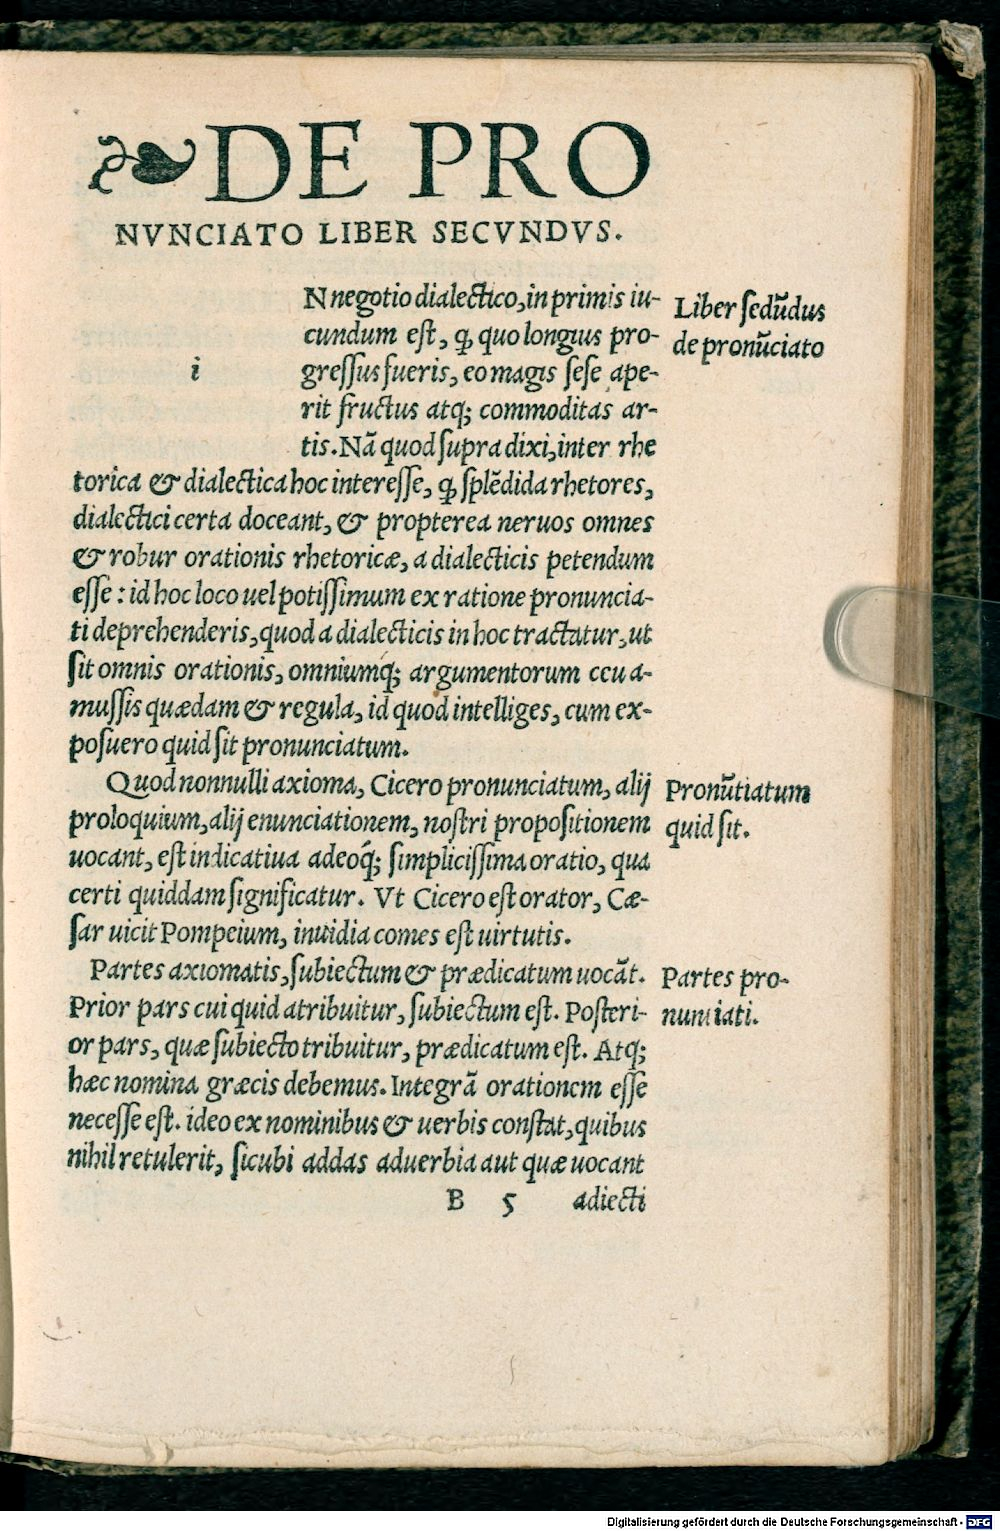 ❧ DE PRO
NVNCIATO LIBER SECVNDVS.
i
N negotio dialectico, in primis iu-
cundum est, ꝙ quo longius pro-
gressus fueris, eo magis sese ape-
rit fructus atq; commoditas ar-
tis. Nā quod supra dixi, inter rhe
torica & dialectica hoc interesse, ꝙ splēdida rhetores,
dialectici certa doceant, & propterea neruos omnes
& robur orationis rhetoricæ, a dialecticis petendum
esse : id hoc loco uel potissimum ex ratione pronuncia-
ti deprehenderis, quod a dialecticis in hoc tractatur, ut
sit omnis orationis, omniumq́; argumentorum ceu a-
mussis quædam & regula, id quod intelliges, cum ex-
posuero quid sit pronunciatum.
Quod nonnulli axioma, Cicero pronunciatum, alij
proloquium, alij enunciationem, nostri propositionem
uocant, est indicatiua adeoq́; simplicissima oratio, qua
certi quiddam significatur. Vt Cicero est orator, Cæ-
sar uicit Pompeium, inuidia comes est uirtutis.
Partes axiomatis, subiectum & prædicatum uocāt.
Prior pars cui quid atribuitur, subiectum est. Posteri-
or pars, quæ subiecto tribuitur, prædicatum est. Atq;
hæc nomina græcis debemus. Integrā orationem esse
necesse est. ideo ex nominibus & uerbis constat, quibus
nihil retulerit, sicubi addas aduerbia aut quæ uocant
B 5 adiecti
Liber sedūdus
de pronūciato
Pronūtiatum
quid sit.
Partes pro-
nuntiati.
Digitalisierung gefördert durch die Deutsche Forschungsgemeinschaft - DFG